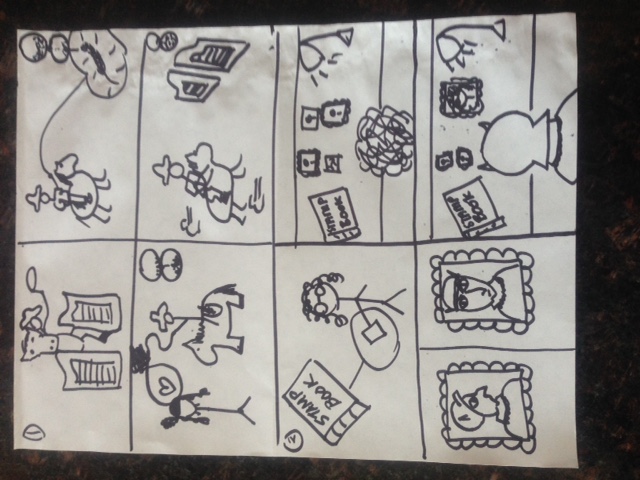 1
2
STAMP
BOOK
STAMP
BOOK
STAMP
BOOK